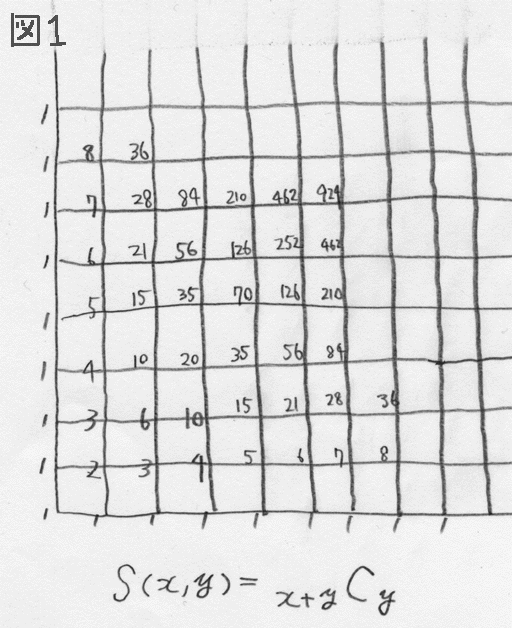 図1
1
1 8 36
1 7 28 84 210 462 924
1 6 21 56 126 252 462
1 5 15 35 70 126 210
1 4 10 20 35 56 84
1 3 6 10 15 21 28 36
1 2 3 4 5 6 7 8
1 1 1 1 1 1 1 1 1
S(x,y) = x+yCy